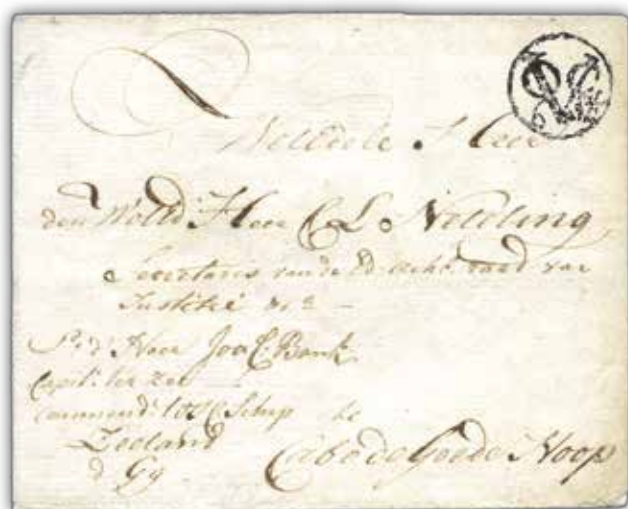 Weledele Heer
den Weled: Heer C. L. Neethling
Secretaris van de Ed: Achtb: raad van
Justitie &:a —
Pr: d' Heer Jan C. Bank
Capit: ter Zee
Command: 's Schip te
Zeeland
Cabo de Goede Hoop